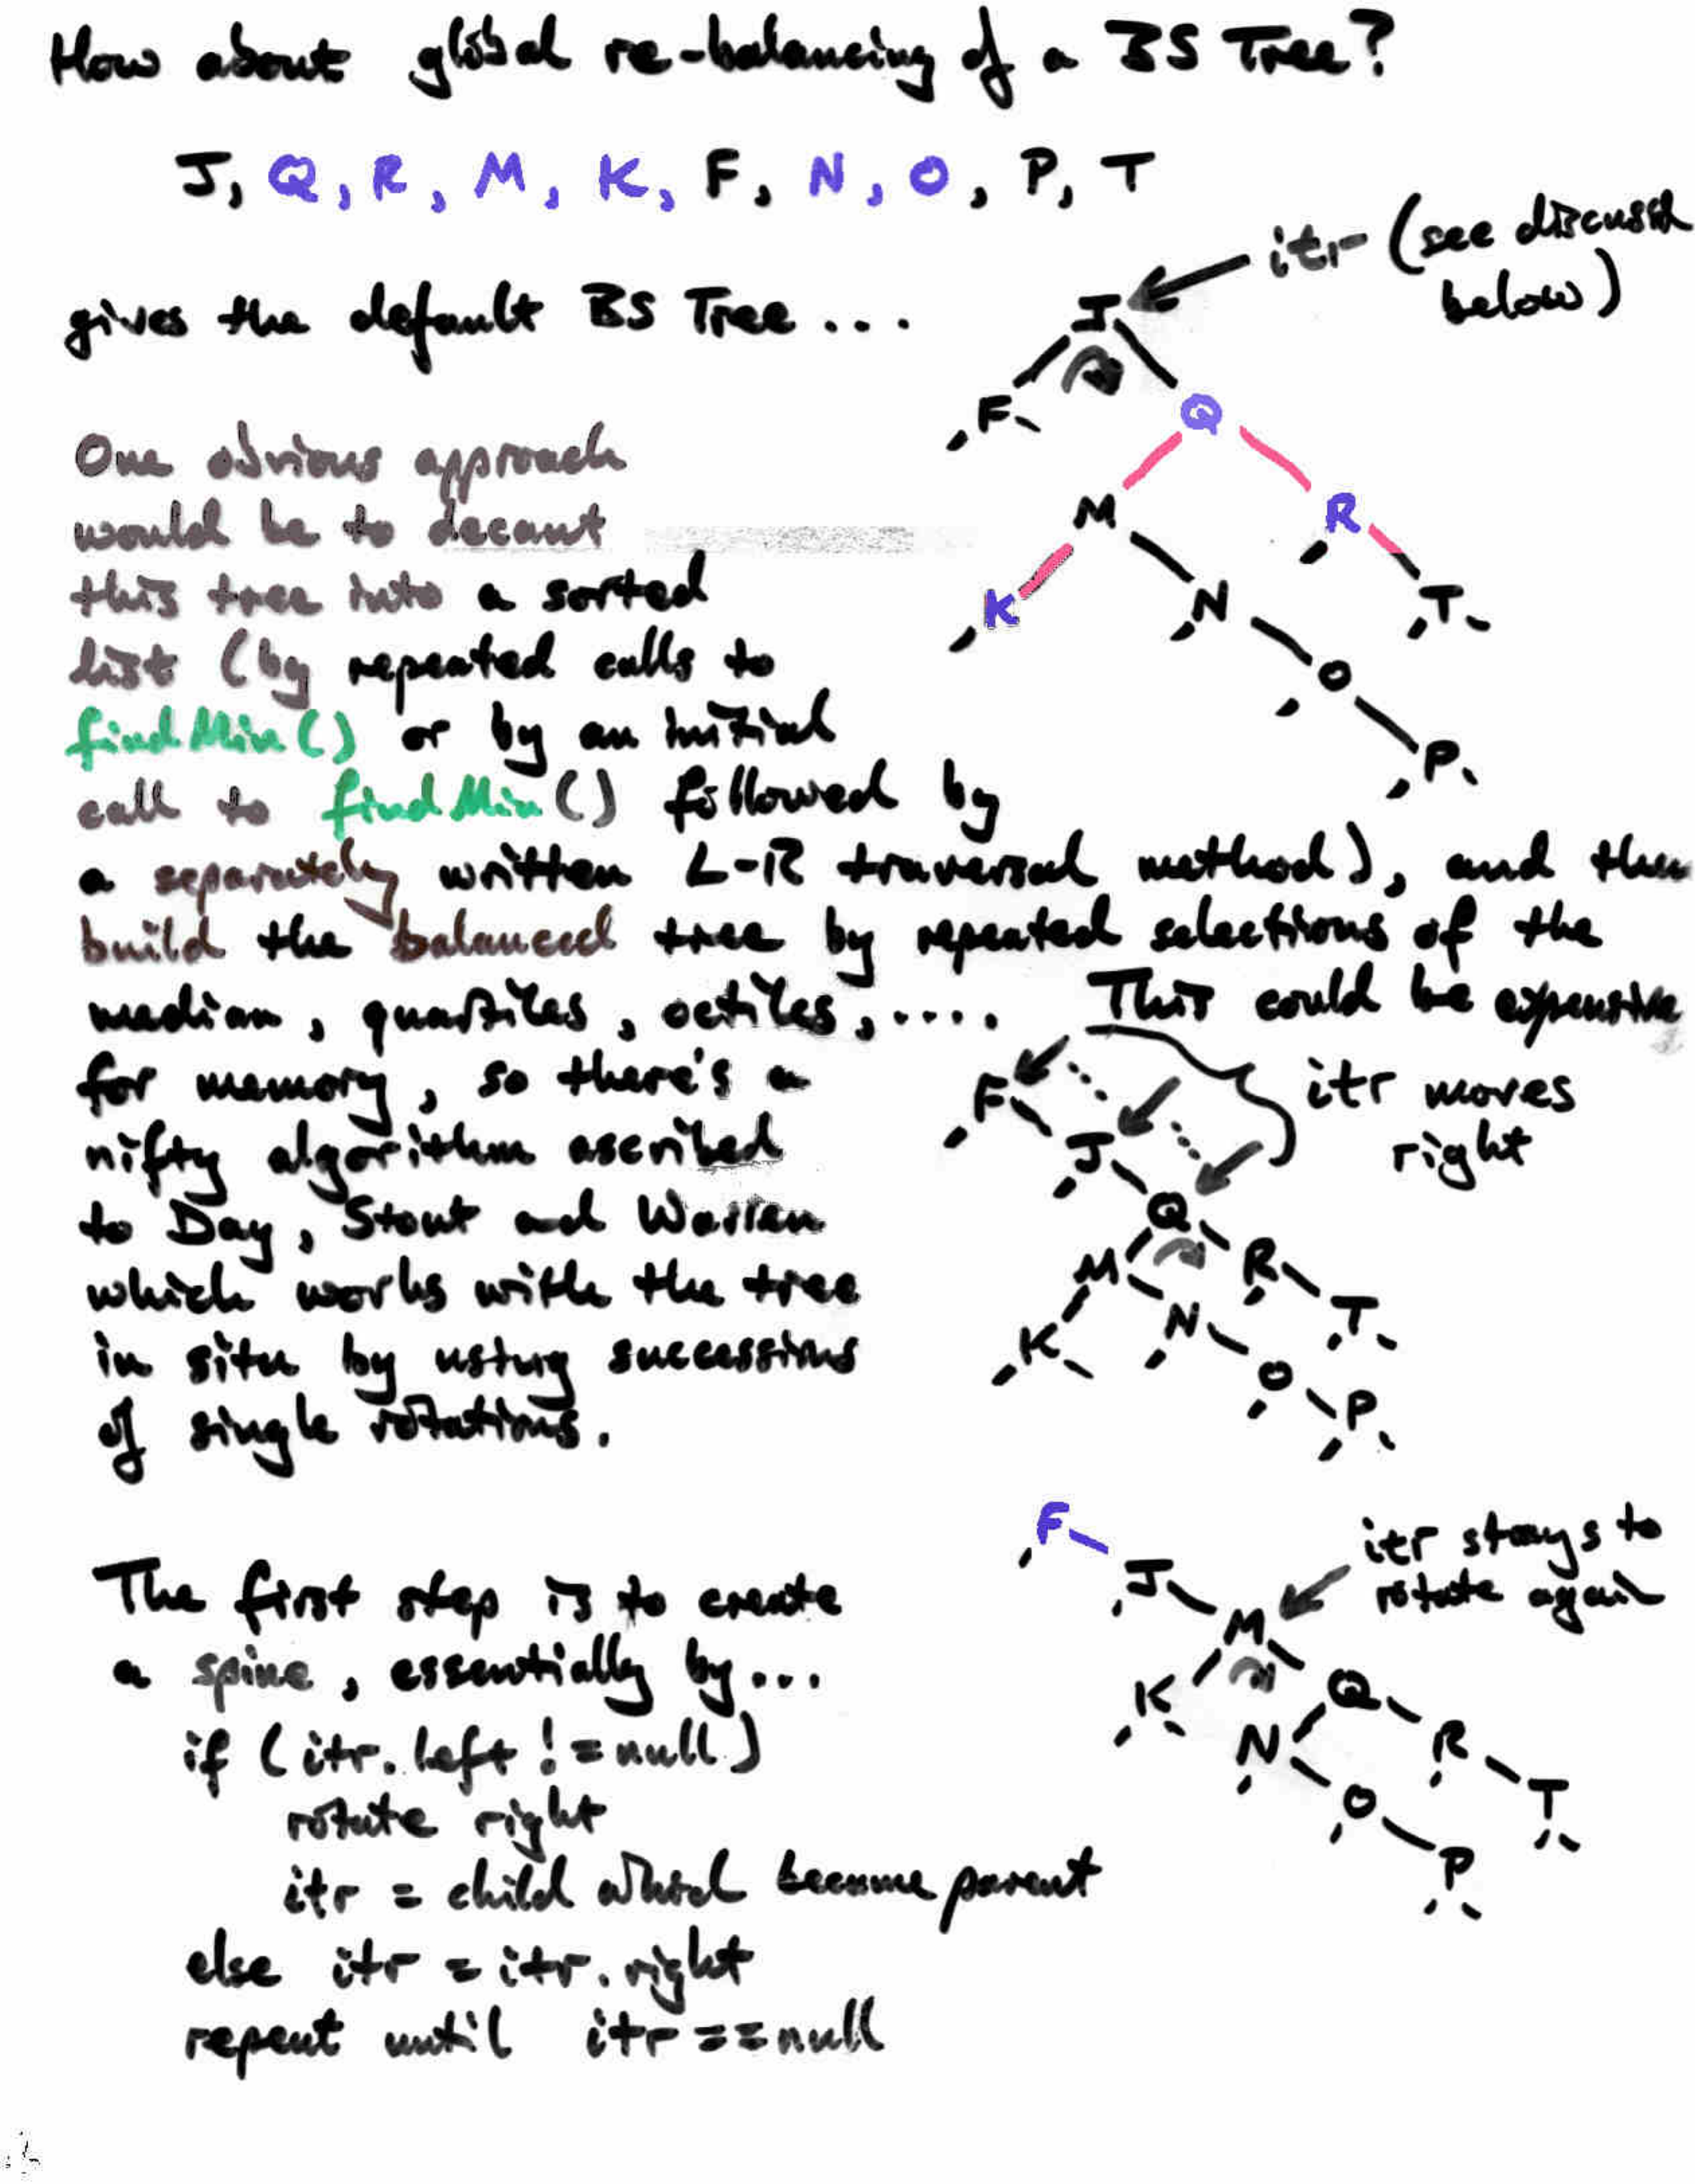 How about global re-balancing of a BS Tree?
J, Q, R, M, K, F, N, O, P, T
itr (see discussn
below)
gives the default BS Tree ...
J
F
Q
M
R
K
N
T
O
P
One obvious approach
would be to decant
this tree into a sorted
list (by repeated calls to
findMin() or by an initial
call to findMin() followed by
a separately written L-R traversal method), and then
build the balanced tree by repeated selections of the
median, quartiles, octiles, .... This could be expensive
for memory, so there's a
nifty algorithm ascribed
to Day, Stout and Warren
which works with the tree
in situ by using successions
of single rotations.
itr moves
right
F
J
Q
M
R
K
N
T
O
P
The first step is to create
a spine, essentially by...
if (itr.left != null)
rotate right
itr = child which became parent
else itr = itr.right
repeat until itr == null
itr stays to
rotate again
F
J
M
K
Q
N
R
O
T
P